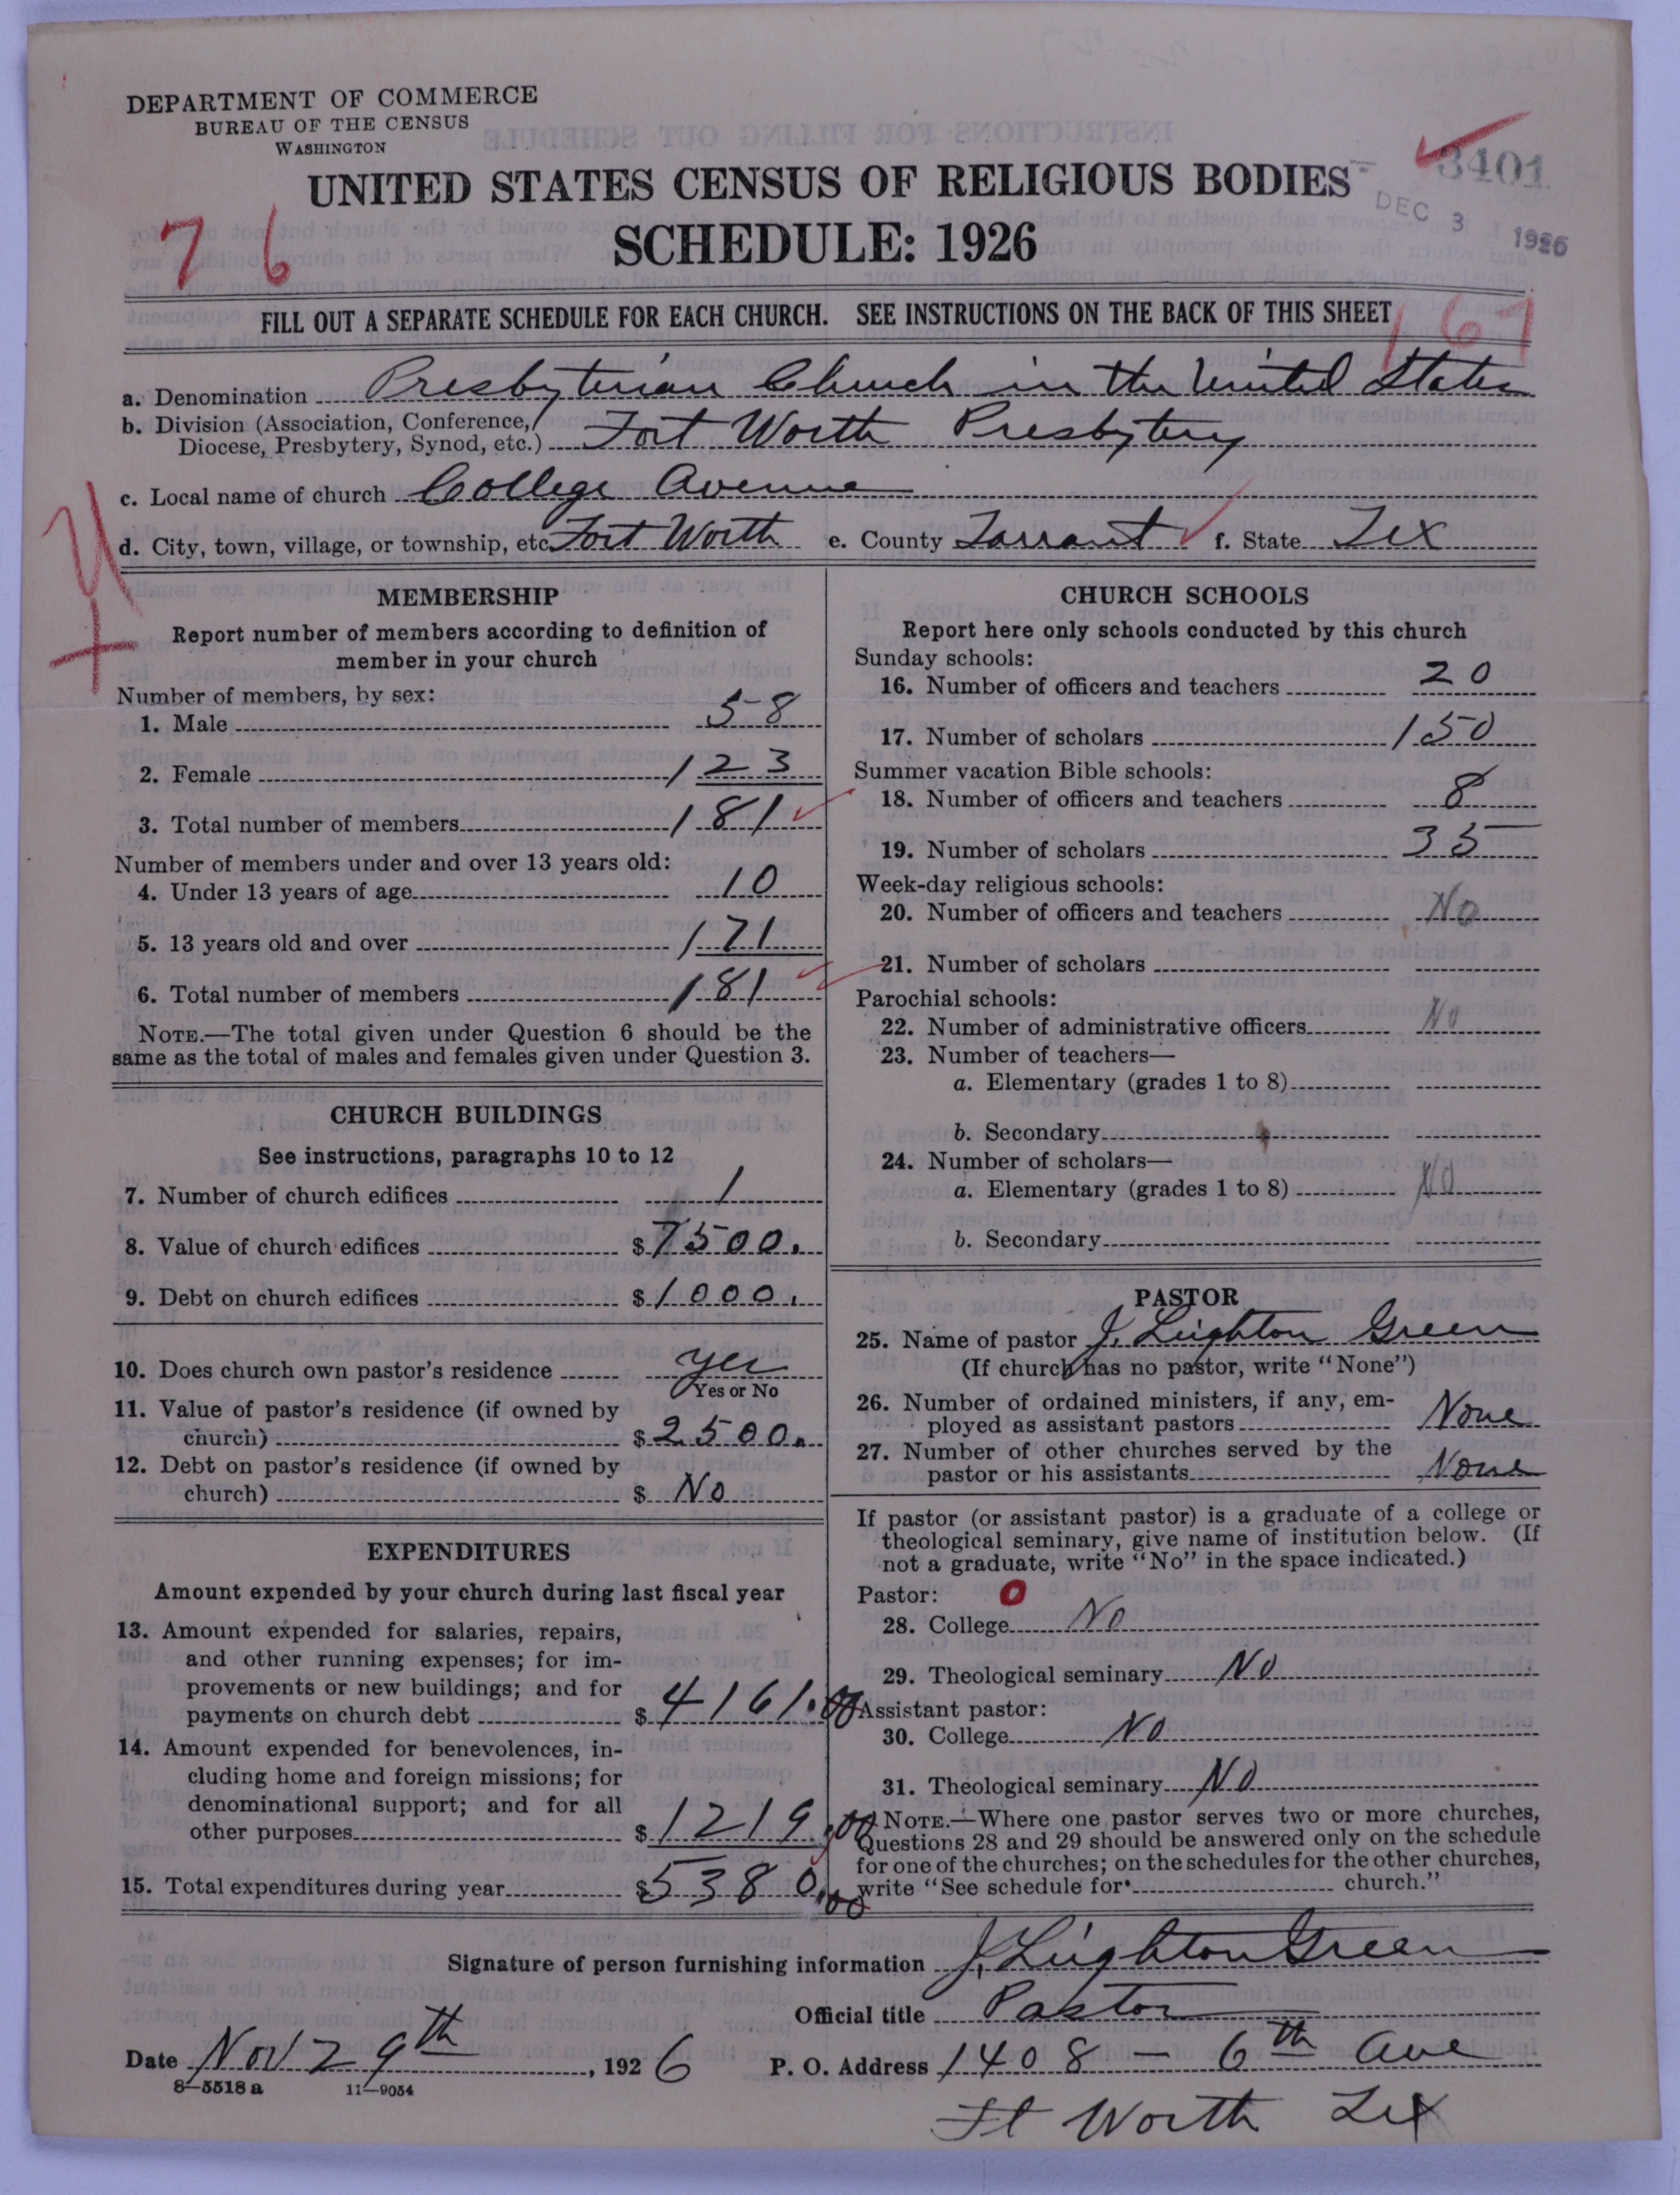 DEPARTMENT OF COMMERCE
BUREAU OF THE CENSUS
WASHINGTON
UNITED STATES CENSUS OF RELIGIOUS BODIES
SCHEDULE: 1926
3401
DEC 3 1926
76
167
FILL OUT A SEPARATE SCHEDULE FOR EACH CHURCH. SEE INSTRUCTIONS ON THE BACK OF THIS SHEET
a. Denomination Presbyterian Church in the United States
b. Division (Association, Conference,
Diocese, Presbytery, Synod, etc.) Fort Worth Presbytery
c. Local name of church College Avenue
d. City, town, village, or township, etc. Fort Worth e. County Tarrant f. State Tex
MEMBERSHIP
Report number of members according to definition of
member in your church
Number of members, by sex:
1. Male 58
2. Female 123
3. Total number of members 181
Number of members under and over 13 years old:
4. Under 13 years of age 10
5. 13 years old and over 171
6. Total number of members 181
NOTE.—The total given under Question 6 should be the
same as the total of males and females given under Question 3.
CHURCH BUILDINGS
See instructions, paragraphs 10 to 12
7. Number of church edifices 1
8. Value of church edifices $7500.
9. Debt on church edifices $1000.
10. Does church own pastor's residence yes
Yes or No
11. Value of pastor's residence (if owned by
church) $2500.
12. Debt on pastor's residence (if owned by
church) $ No
EXPENDITURES
Amount expended by your church during last fiscal year
13. Amount expended for salaries, repairs,
and other running expenses; for im-
provements or new buildings; and for
payments on church debt $4161.00
14. Amount expended for benevolences, in-
cluding home and foreign missions; for
denominational support; and for all
other purposes $1219.00
15. Total expenditures during year $5380.00
CHURCH SCHOOLS
Report here only schools conducted by this church
Sunday schools:
16. Number of officers and teachers 20
17. Number of scholars 150
Summer vacation Bible schools:
18. Number of officers and teachers 8
19. Number of scholars 35
Week-day religious schools:
20. Number of officers and teachers No
21. Number of scholars
Parochial schools:
22. Number of administrative officers No
23. Number of teachers—
a. Elementary (grades 1 to 8)
b. Secondary
24. Number of scholars—
a. Elementary (grades 1 to 8) No
b. Secondary
PASTOR
25. Name of pastor J. Leighton Green
(If church has no pastor, write "None")
26. Number of ordained ministers, if any, em-
ployed as assistant pastors None
27. Number of other churches served by the
pastor or his assistants None
If pastor (or assistant pastor) is a graduate of a college or
theological seminary, give name of institution below. (If
not a graduate, write "No" in the space indicated.)
Pastor: 0
28. College No
29. Theological seminary No
Assistant pastor:
30. College No
31. Theological seminary No
NOTE.—Where one pastor serves two or more churches,
Questions 28 and 29 should be answered only on the schedule
for one of the churches; on the schedules for the other churches,
write "See schedule for church."
Signature of person furnishing information J. Leighton Green
Official title Pastor
Date Nov 29th, 1926 P. O. Address 1408 - 6th Ave
8-5518 a 11-9054
Ft Worth Tex